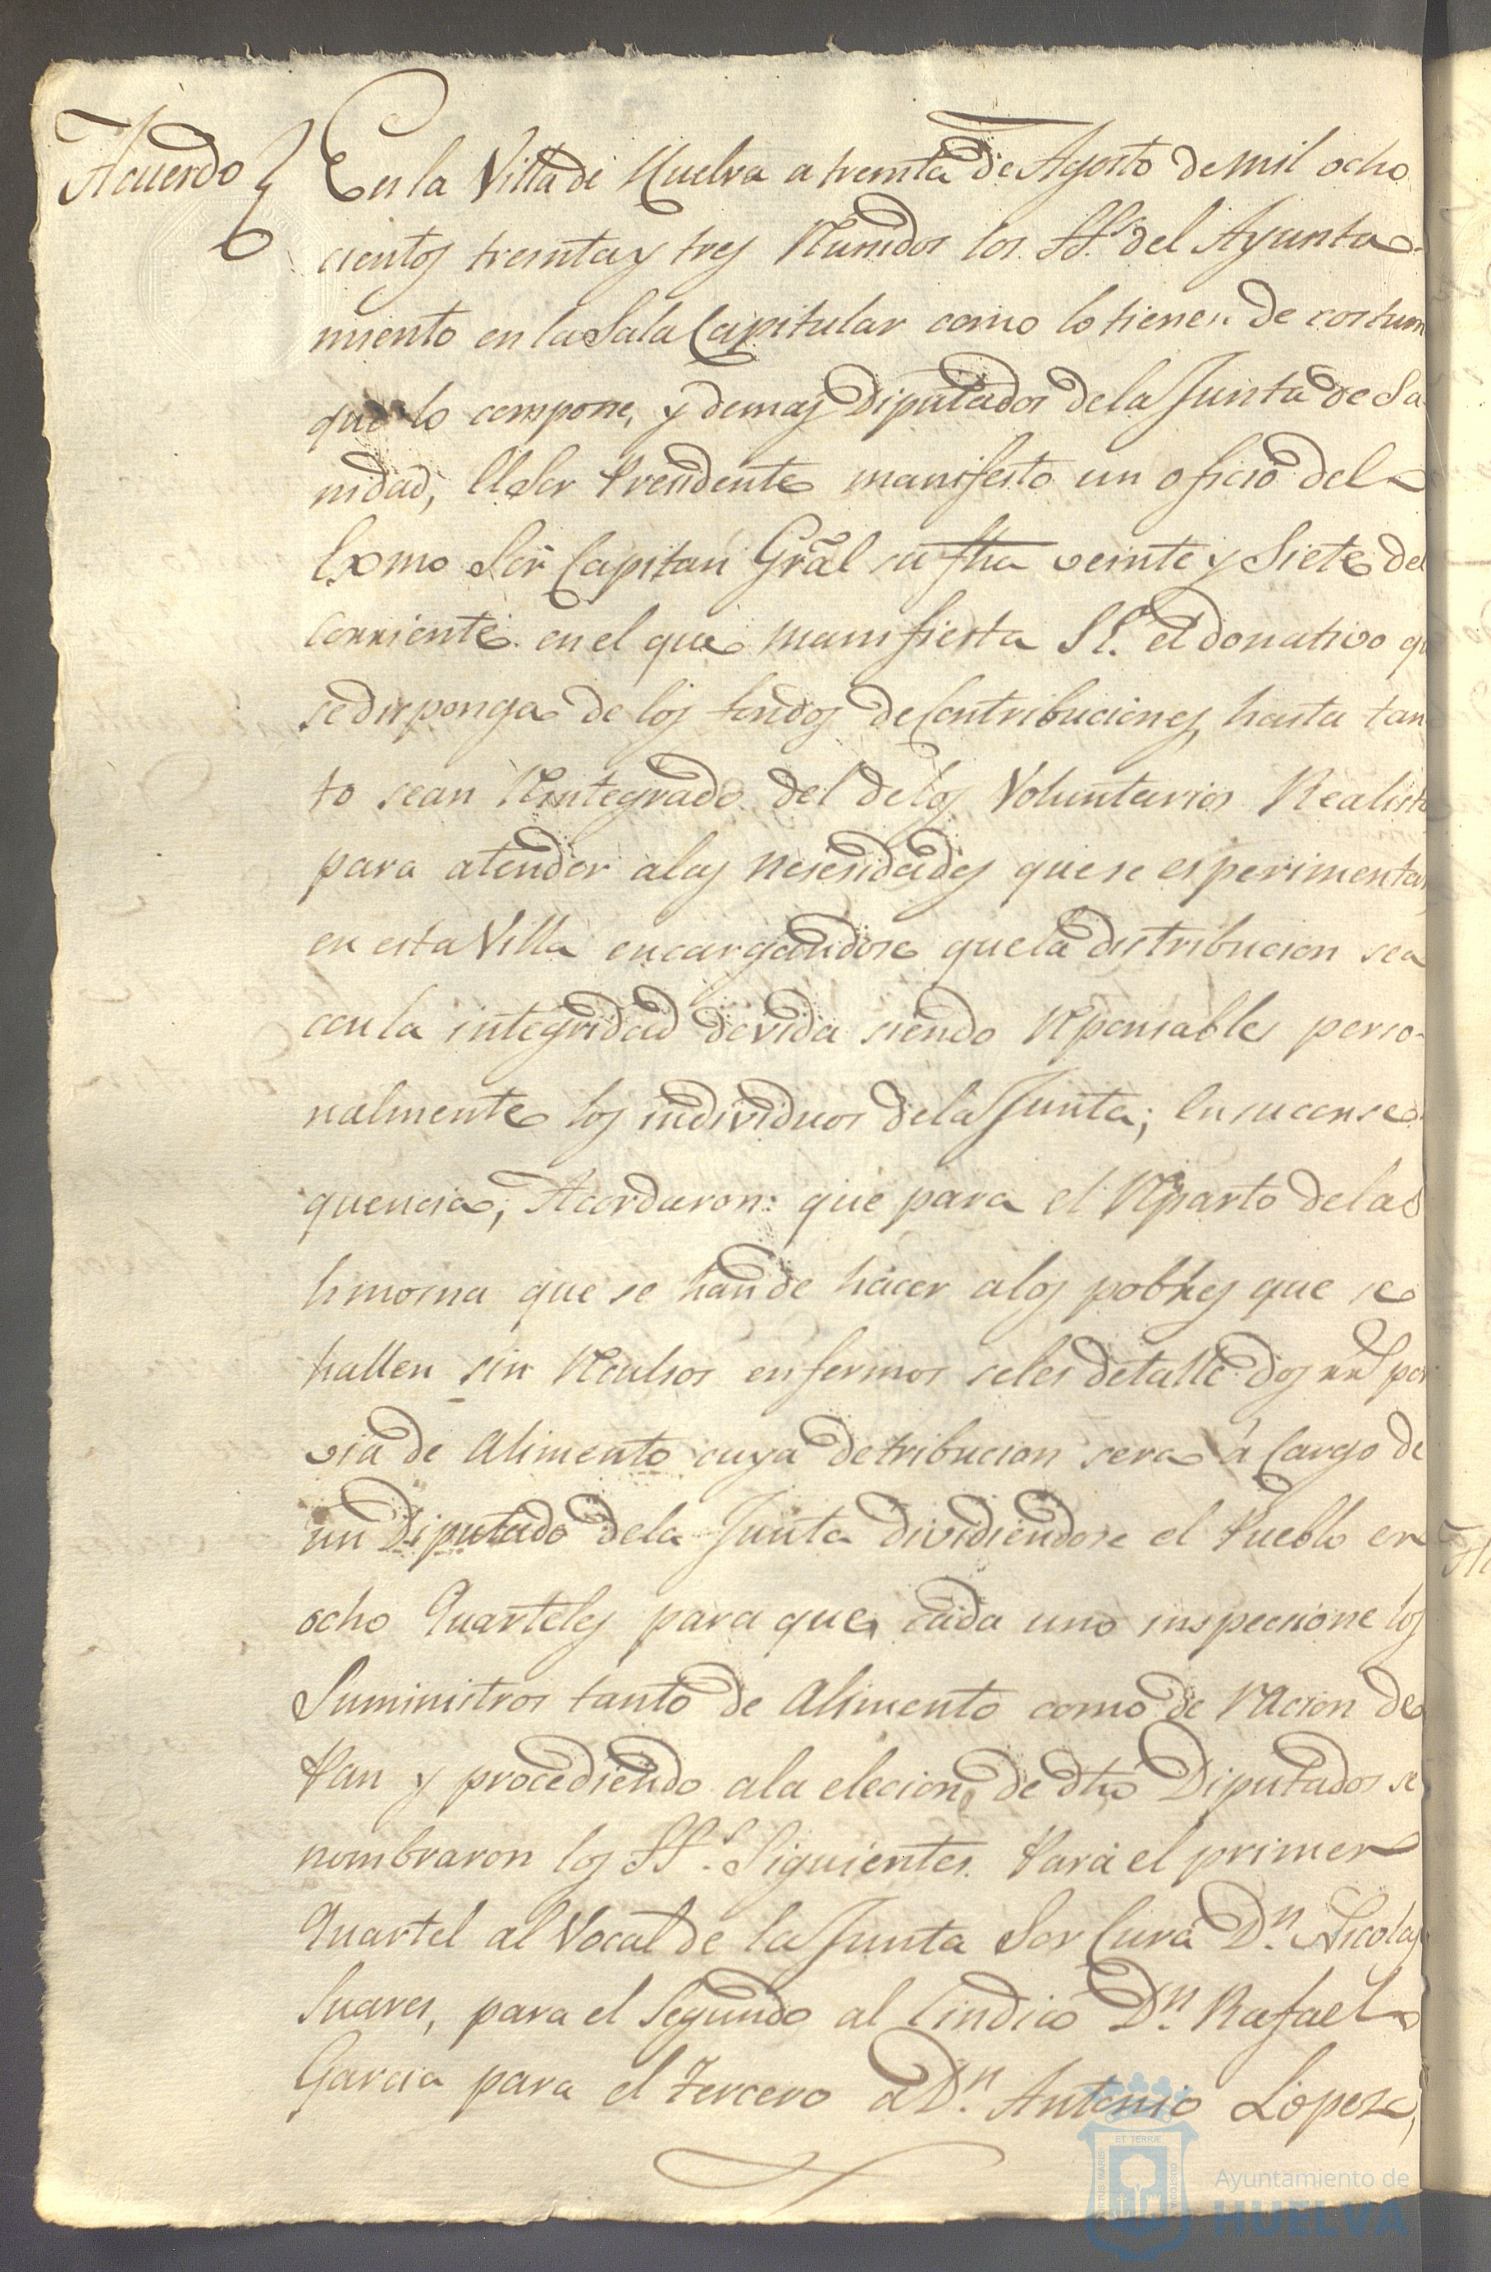 Acuerdo
En la Villa de Huelva a treinta de Agosto de mil ocho
cientos treinta y tres Runidos los SS.s del Ayunta-
miento en la Sala Capitular como lo tienen de costum
que lo compone, y demas Diputados de la Junta de Sa
nidad, El Sor Presidente manifesto un oficio del
Exmo Sor Capitan Gral su fha veinte y Siete del
Corriente en el que manifiesta S E. el donativo q
se disponga de los fondos de Contribuciones, hasta tan
to sean Reintegrado del de los Voluntarios Realist
para atender a las nesesidades que se esperimenta
en esta Villa encargandose que la distribucion sea
con la integridad devida siendo Rponsables perso-
nalmente los individuos de la Junta; En su conse-
quencia, Acordaron: que para el Reparto de las
limosna que se han de hacer a los pobres que se
hallen sin Reculsos enfermos se les detalle dos rr.s por
via de Alimento cuya detribucion sera á Cargo de
un Diputado de la Junta dividiendose el Pueblo en
ocho Quarteles para que cada uno inspeccione los
Suministros tanto de Alimento como de Racion de
Pan y procediendo a la elecion de dho Diputados se
nombraron los SS.s Siguientes. Para el primer
Quartel al Vocal de la Junta Sor Cura D.n Nicolas
Suares, para el Segundo al Sindico D.n Rafael
Garcia para el tercero a D.n Antonio Lopez,
ET TERRÆ
Ayuntamiento de
HUELVA